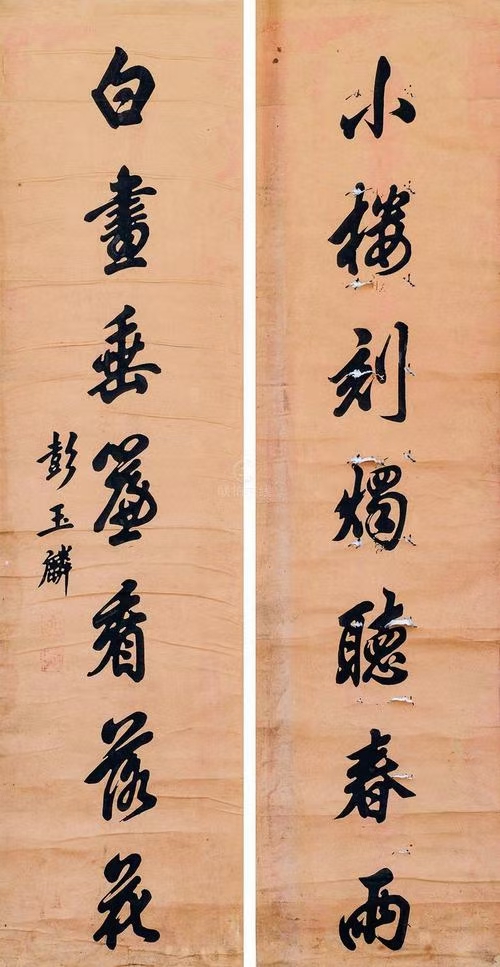 小樓刻燭聽春雨
白晝垂簾看落花
彭玉麟